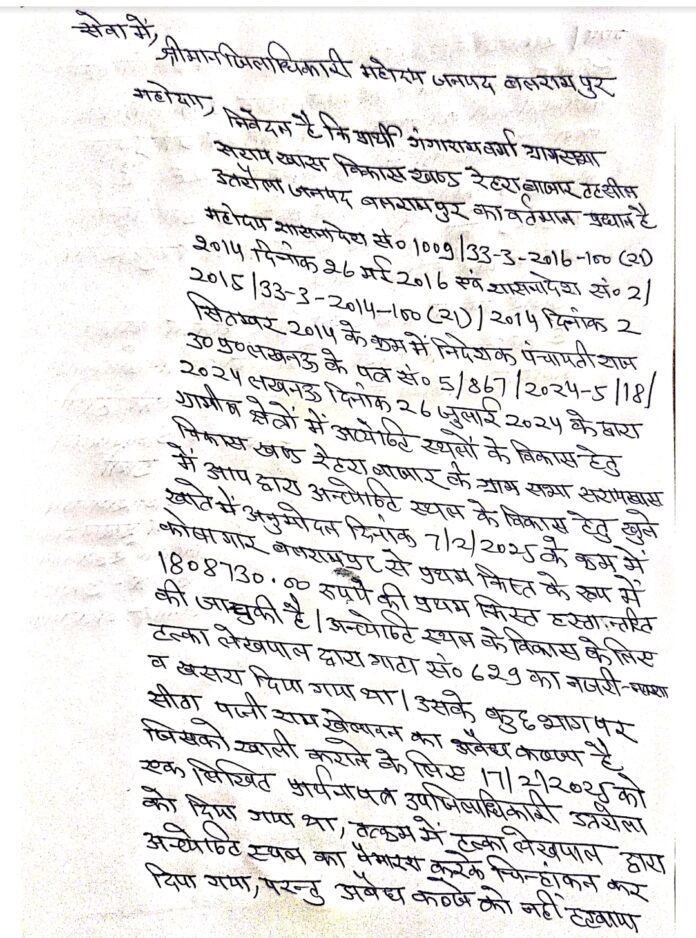 सेवा में,
श्रीमान जिलाधिकारी महोदय जनपद बलरामपुर
महोदय,
निवेदन है कि प्रार्थी गंगाराम वर्मा ग्रामसभा
सराय खास विकास खण्ड रेहरा बाजार तहसील
उतरौला जनपद बलरामपुर का वर्तमान प्रधान है
महोदय शासनादेश सं० 1009/33-3-2016-100(21)
2014 दिनांक 26 मई 2016 एवं शासनादेश सं० 2/
2015/33-3-2014-100(21)/2014 दिनांक 2
सितम्बर 2014 के क्रम में निदेशक पंचायती राज
उ०प्र० लखनऊ के पत्र सं० 5/867/2024-5/18/
2024 लखनऊ दिनांक 26 जुलाई 2024 के द्वारा
ग्रामीण क्षेत्रों में अन्त्येष्टि स्थलों के विकास हेतु
विकास खण्ड रेहरा बाजार के ग्राम सभा सरायखास
में आप द्वारा अन्त्येष्टि स्थल के विकास हेतु खुले
खाते में अनुमोदन दिनांक 7/2/2025 के क्रम में
कोषागार बलरामपुर से प्रथम किस्त के रूप में
1808730.00 रुपये की प्रथम किस्त हस्तान्तरित
की जा चुकी है। अन्त्येष्टि स्थल के विकास के लिए
हल्का लेखपाल द्वारा गाटा सं० 629 का नजरी-नक्शा
व खसरा दिया गया था। उसके कुछ भाग पर
सीता पत्नी राम खेलावन का अवैध कब्जा है
जिसको खाली कराने के लिए 17/2/2025 को
एक लिखित प्रार्थनापत्र उपजिलाधिकारी उतरौला
को दिया गया था, तत्क्रम में हल्का लेखपाल द्वारा
अन्त्येष्टि स्थल का पैमाइश करके चिन्हांकन कर
दिया गया, परन्तु अवैध कब्जे को नहीं हटवाया